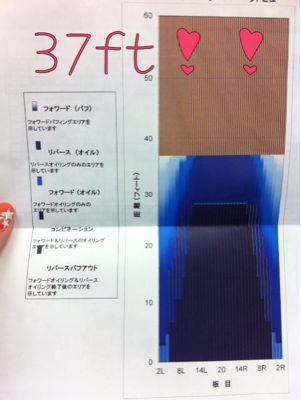 37ft!!
60
50
40
30
20
10
0
距離(フィート)
2L 8L 14L 20 14R 8R 2R
板目
フォワード(バフ)
フォワードバフィングエリアを
示しています
リバース(オイル)
リバースオイリングのみのエリアを
示しています
フォワード(オイル)
フォワードオイリングのみの
エリアを示しています
コンビネーション
フォワード&リバースのオイリング
エリアを示しています
リバースバフアウト
フォワードオイリング&リバース
オイリング終了後のエリアを
示しています